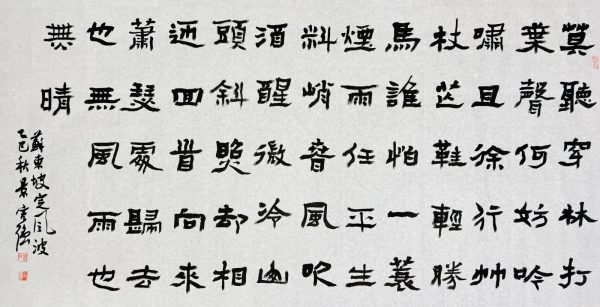 莫聽穿林打
葉聲何妨吟
嘯且徐行竹
杖芒鞋輕勝
馬誰怕一蓑
煙雨任平生
料峭春風吹
酒醒微冷山
頭斜照却相
迎回首向來
蕭瑟處歸去
也無風雨也
無晴
蘇東坡定風波
乙巳秋景